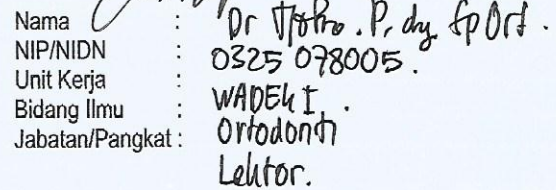 Nama : Dr Tjokro . P, drg, Sp Ort .
NIP/NIDN : 0325 078005 .
Unit Kerja : WADEK I .
Bidang Ilmu : Ortodonti
Jabatan/Pangkat : Lektor.